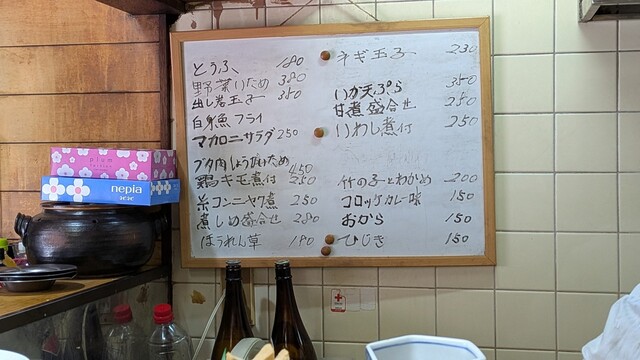 とうふ 180
野菜いため 380
出し巻玉子 350
白身魚フライ
マカロニサラダ 250
ブタ肉しょうがいため 450
鶏キモ煮付 250
糸コンニャク煮 250
煮しめ盛合せ 280
ほうれん草 180
ネギ玉子 230
いか天ぷら 350
甘煮盛合せ 250
いわし煮付 250
竹の子とわかめ 200
コロッケカレー味 150
おから 150
ひじき 150
plum
nepia